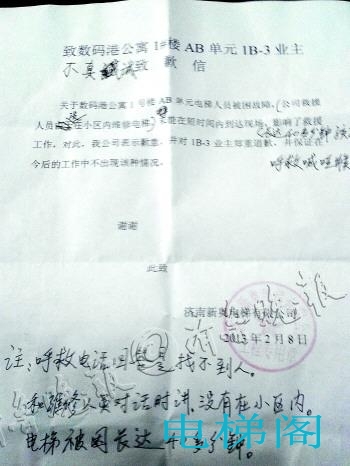 致数码港公寓1#楼AB单元1B-3业主
不真诚致歉信
关于数码港公寓1号楼AB单元电梯人员被困故障，公司救援
人员在小区内维修电梯，未能在短时间内到达现场，影响了救援
长达40多分钟
工作。对此，我公司表示歉意，并对1B-3业主郑重道歉，并保证在
今后的工作中不出现该种情况。
呼救喊哑喉
谢谢
此致
济南新奥电梯有限公司
2013年2月8日
注：呼救电话回答是找不到人。
和维修人员对话时讲，没有在小区内。
电梯被困长达40多分钟。
电梯阁